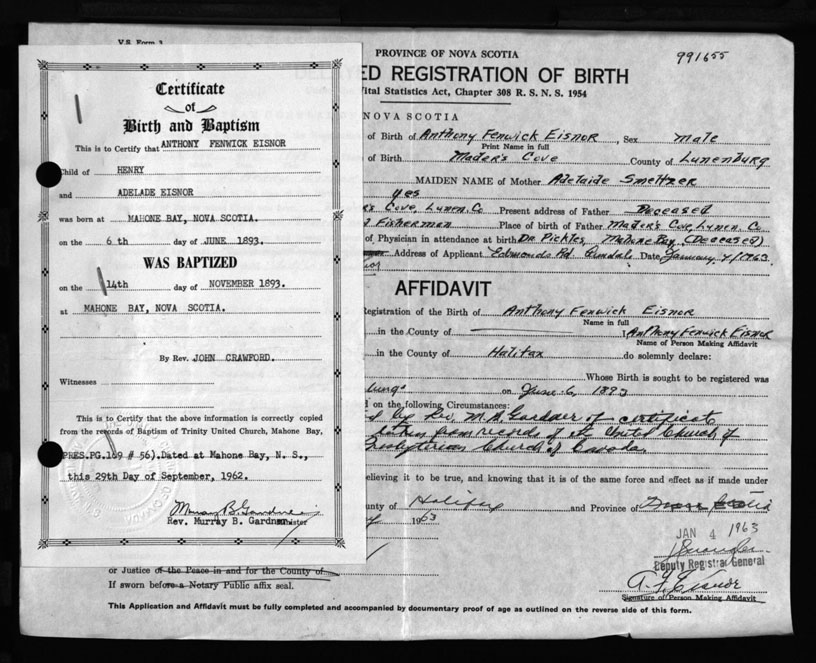 Certificate
of
Birth and Baptism
This is to Certify that ANTHONY FENWICK EISNOR
Child of HENRY
and ADELADE EISNOR
was born at MAHONE BAY, NOVA SCOTIA.
on the 6 th day of JUNE 1893.
WAS BAPTIZED
on the 14th day of NOVEMBER 1893.
at MAHONE BAY, NOVA SCOTIA.
By Rev. JOHN CRAWFORD.
Witnesses
This is to Certify that the above information is correctly copied
from the records of Baptism of Trinity United Church, Mahone Bay,
PRES.PG.189 # 56).Dated at Mahone Bay, N. S.,
this 29th Day of September, 1962.
Murray B. Gardner
Rev. Murray B. Gardner
V.S. Form 3
PROVINCE OF NOVA SCOTIA
991655
DELAYED REGISTRATION OF BIRTH
Vital Statistics Act, Chapter 308 R. S. N. S. 1954
NOVA SCOTIA
of Birth of Anthony Fenwick Eisnor, Sex Male
Print Name in full
of Birth Mader's Cove County of Lunenburg
MAIDEN NAME of Mother Adelaide Smeltzer
yes
Cove, Lunen. Co Present address of Father Deceased
Fisherman Place of birth of Father Mader's Cove, Lunen. Co
of Physician in attendance at birth Dr. Pickles, Mahone Bay (Deceased)
Address of Applicant Edmonds Rd. Armdale Date January 4/1963
AFFIDAVIT
Registration of the Birth of Anthony Fenwick Eisnor
Name in full
in the County of I Anthony Fenwick Eisnor
Name of Person Making Affidavit
in the County of Halifax do solemnly declare:
Whose Birth is sought to be registered was
on June 6, 1893
on the following Circumstances:
by Rev. M. B. Gardner of certificate
taken from records of the United Church of
Presbyterian Church of Canada
believing it to be true, and knowing that it is of the same force and effect as if made under
County of Halifax and Province of Nova Scotia
1963
JAN 4 1963
Deputy Registrar General
A. F. Eisnor
Signature of Person Making Affidavit
or Justice of the Peace in and for the County of
If sworn before a Notary Public affix seal.
This Application and Affidavit must be fully completed and accompanied by documentary proof of age as outlined on the reverse side of this form.